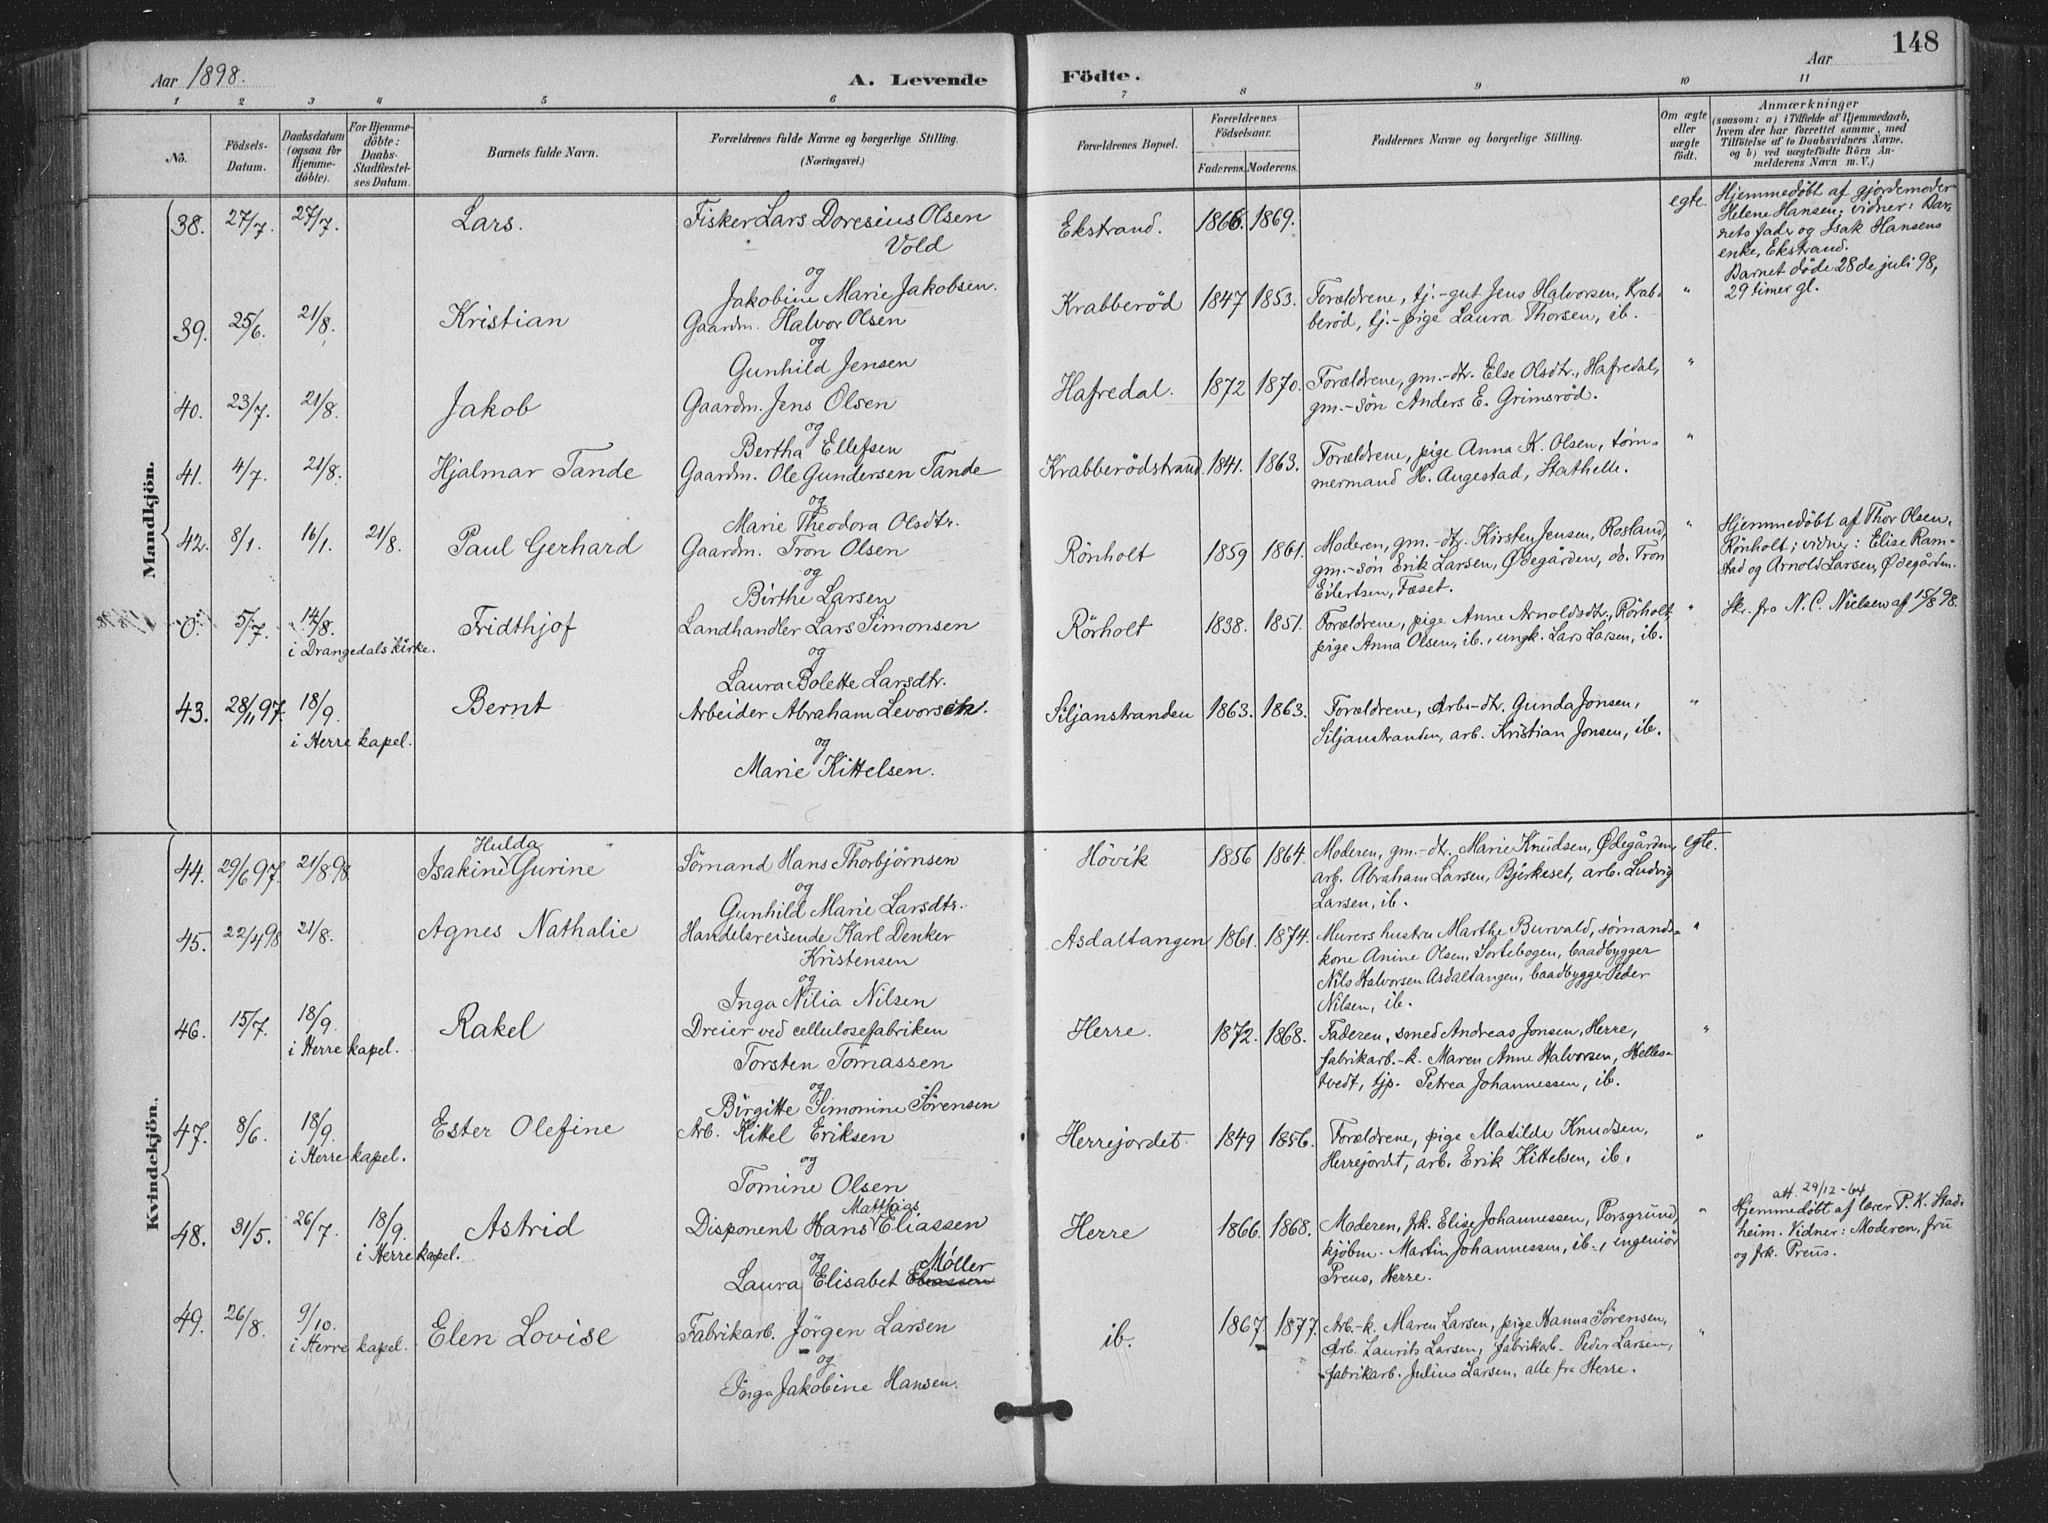 148
Aar 1898.
A. Levende Födte.
Aar
1 2 3 4 5 6 7 8 9 10 11
No.
Födsels-Datum.
Daabsdatum (ogsaa for Hjemme-döbte).
For Hjemme-döbte: Daabs-Stadfæstel-ses Datum.
Barnets fulde Navn.
Forældrenes fulde Navne og borgerlige Stilling.
(Næringsvei.)
Forældrenes Bopæl.
Forældrenes Födselsaar.
Faderens. Moderens.
Faddernes Navne og borgerlige Stilling.
Om ægte eller uægte födt.
Anmærkninger
(saasom: a) i Tilfælde af Hjemmedaab,
hvem der har forrettet samme, med
Tilföielse af to Daabsvidners Navne,
og b) ved uægtefödte Börn An-
melderens Navn m. V.)
Mandkjön.
38. 27/7. 27/7. Lars. Fisker Lars Doresius Olsen
Vold
og
Jakobine Marie Jakobsen.
Ekstrand. 1866. 1869. egte.
Hjemmedøbt af gjordemoder
Helene Hansen; vidner: Bar-
nets fader og Isak Hansens
enke, Ekstrand.
Barnet døde 28de juli 98,
29 timer gl.
39. 25/6. 21/8. Kristian Gaardm. Halvor Olsen
og
Gunhild Jensen
Krabberød 1847 1853. Forældrene, tj.-gut Jens Halvorsen, Krab-
berød, tj.-pige Laura Thorsen, ib. "
40. 23/7. 21/8. Jakob Gaardm. Jens Olsen
og
Bertha Ellefsen
Hafredal. 1872 1870. Forældrene, gm.-dtr. Else Olsdtr., Hafredal,
gm.-søn Anders E. Grimsrød. "
41. 4/7. 21/8. Hjalmar Tande Gaardm. Ole Gundersen Tande
og
Marie Theodora Olsdtr.
Krabberødstrand 1841. 1863. Forældrene, pige Anna K. Olsen, tøm-
mermand H. Augestad, Stathelle. "
42. 8/1. 16/1. 21/8. Paul Gerhard Gaardm. Tron Olsen
og
Birthe Larsen
Rönholt 1859 1861. Moderen, gm.-dtr. Kirsten Jensen, Rosland,
gm.-søn Erik Larsen, Ødegården, do. Tron
Eilertsen, Fæset. "
Hjemmedøbt af Thor Olsen,
Rönholt; vidner: Elise Ram-
stad og Arnold Larsen, Ødegården.
0. 5/7. 14/8. i Drangedals kirke. Fridthjof Landhandler Lars Simonsen
og
Laura Bolette Larsdtr.
Rörholt 1838. 1851. Forældrene, pige Anne Arnoldsdtr., Rörholt,
pige Anna Olsen, ib., ungk. Lars Larsen, ib. "
Skr. fra N. C. Nielsen af 15/8 98.
43. 28/11 97. 18/9. i Herre kapel. Bernt Arbeider Abraham Levorsen.
og
Marie Kittelsen.
Siljanstranden 1863. 1863. Forældrene, Arb.-dtr. Gunda Jonsen,
Siljanstranden, arb. Kristian Jonsen, ib. "
Kvindekjön.
44. 29/6 97. 21/8 98. Isakine Hulda Gurine Sömand Hans Thorbjörnsen
og
Gunhild Marie Larsdtr.
Hövik 1856 1864. Moderen, gm.-dtr. Marie Knudsen, Ødegården,
arb. Abraham Larsen, Bjerkeset, arb. Ludvig
Larsen, ib. egte.
45. 22/4 98 21/8. Agnes Nathalie Handelsreisende Karl Denker
Kristensen
og
Inga Nilia Nilsen
Asdaltangen 1861. 1874. Murers hustru Marthe Burvald, sømands-
kone Anine Olsen, Sortebogen, baadbygger
Nils Halvorsen Asdaltangen, baadbygger Peder
Nilsen, ib. "
46. 15/7. 18/9. i Herre kapel. Rakel Dreier ved cellulosefabriken
Torsten Tomassen
og
Birgitte Simonine Sörensen
Herre. 1872. 1868. Faderen, smed Andreas Jonsen, Herre,
fabrikarb.-k. Maren Anne Halvorsen, Helles-
tvedt, tjp. Petrea Johannessen, ib. "
47. 8/6. 18/9. i Herre kapel. Ester Olefine Arb. Kittel Eriksen
og
Tomine Olsen
Herrejordet. 1849 1856. Forældrene, pige Matilde Knudsen,
Herrejordet, arb. Erik Kittelsen, ib. "
48. 31/5. 26/7. 18/9. i Herre kapel. Astrid Disponent Hans Matthias Eliassen
og
Laura Elisabet Eliassen Møller
Herre 1866. 1868. Moderen, frk. Elise Johannessen, Porsgrund,
kjøbm. Martin Johannessen, ib., ingeniör
Preus, Herre. "
att. 29/12-64
Hjemmedøbt af lærer P. K. Stad-
heim. Vidner: Moderen, fru
og frk. Preus.
49. 26/8. 9/10. i Herre kapel. Elen Lovise Fabrikarb. Jörgen Larsen
og
Inga Jakobine Hansen.
ib. 1867. 1877. Arb.-k. Maren Larsen, pige Hanna Sörensen,
Arb. Laurits Larsen, fabrikab. Peder Larsen,
fabrikarb. Julius Larsen, alle fra Herre. "